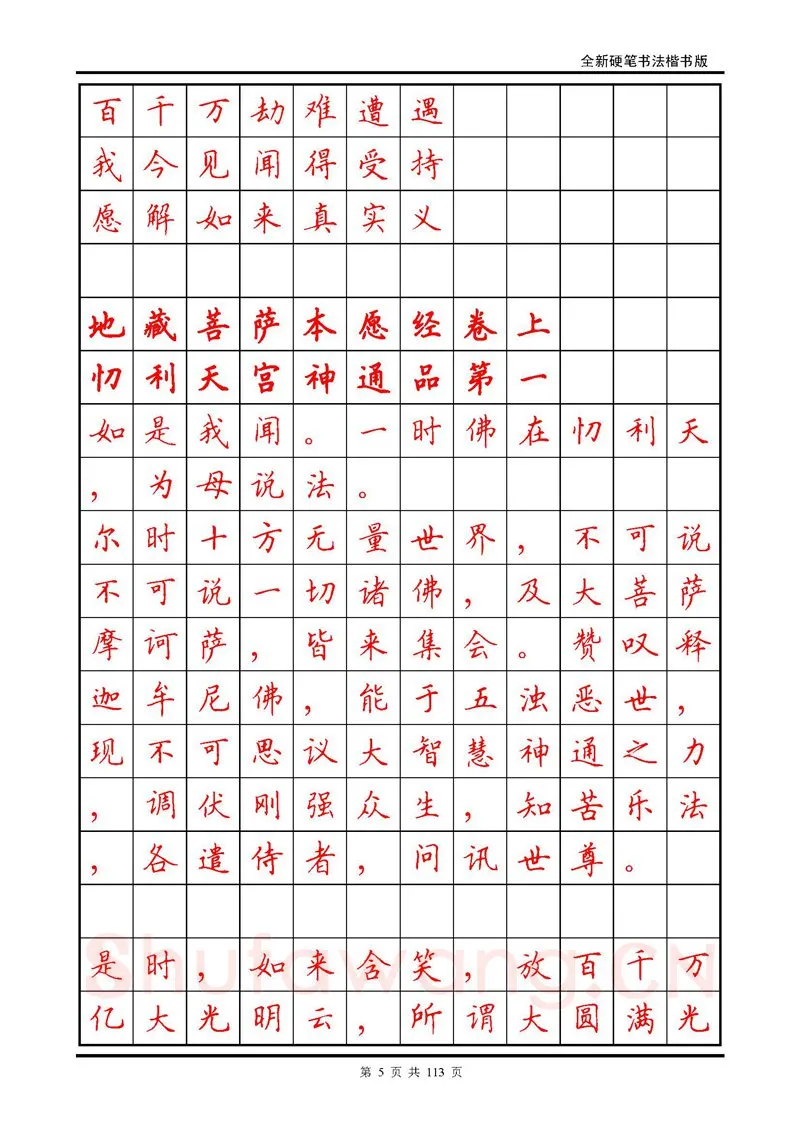 全新硬笔书法楷书版
百千万劫难遭遇
我今见闻得受持
愿解如来真实义
地藏菩萨本愿经卷上
忉利天宫神通品第一
如是我闻。一时佛在忉利天
，为母说法。
尔时十方无量世界，不可说
不可说一切诸佛，及大菩萨
摩诃萨，皆来集会。赞叹释
迦牟尼佛，能于五浊恶世，
现不可思议大智慧神通之力
，调伏刚强众生，知苦乐法
，各遣侍者，问讯世尊。
是时，如来含笑，放百千万
亿大光明云，所谓大圆满光
Shufawang.CN
第 5 页 共 113 页